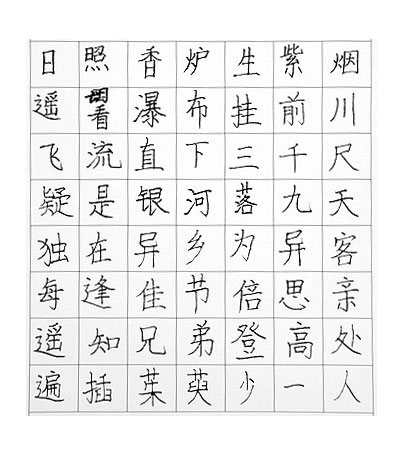 日照香炉生紫烟
遥看瀑布挂前川
飞流直下三千尺
疑是银河落九天
独在异乡为异客
每逢佳节倍思亲
遥知兄弟登高处
遍插茱萸少一人